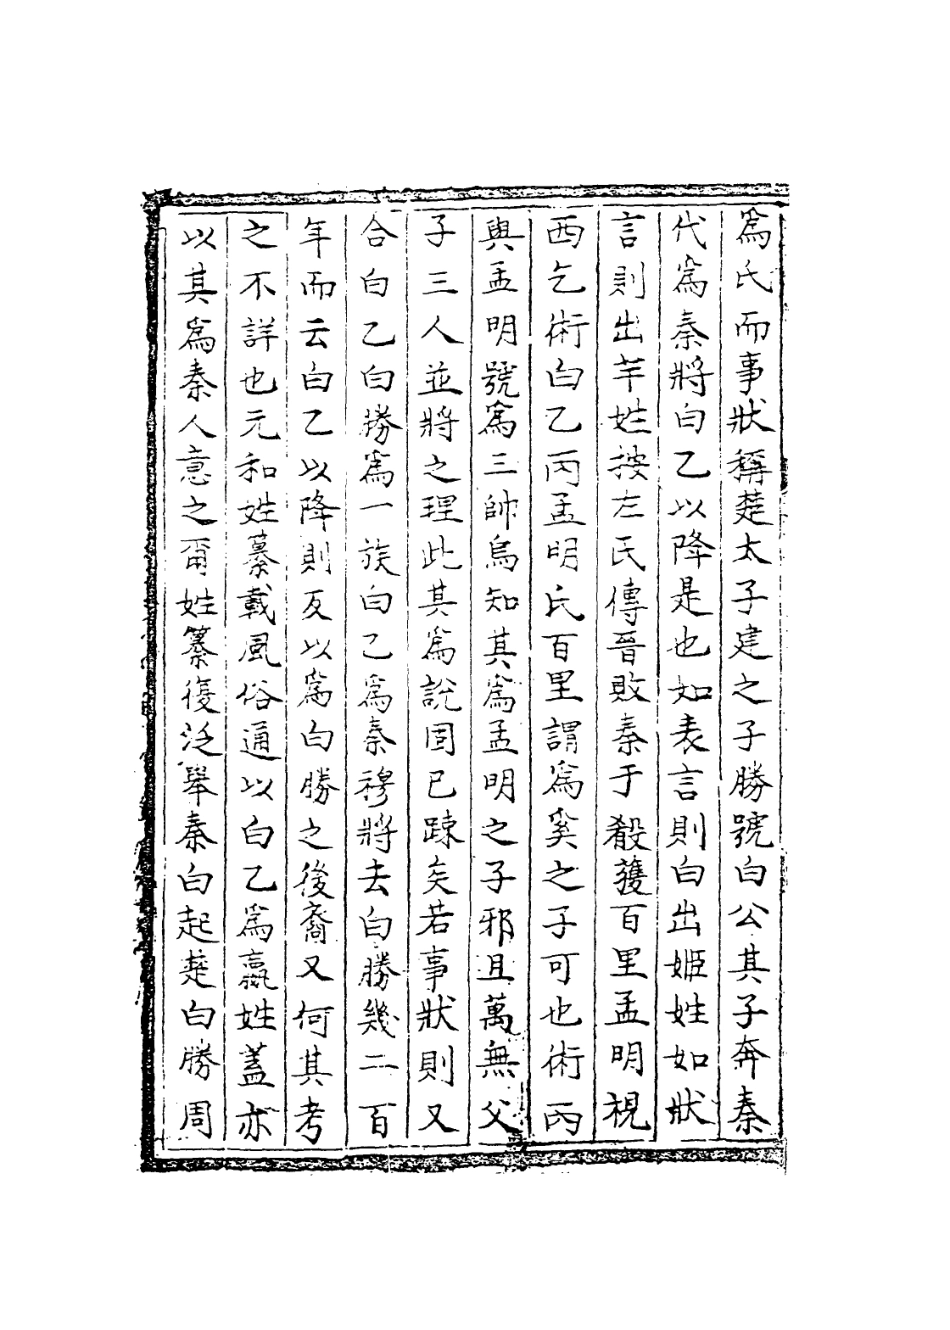 為氏而事狀稱楚太子建之子勝號白公其子奔秦
代為秦將白乙以降是也如表言則白出姬姓如狀
言則出芊姓按左氏傳晉敗秦于殽獲百里孟明視
西乞術白乙丙孟明氏百里謂為奚之子可也術丙
與孟明號為三帥烏知其為孟明之子邪且萬無父
子三人並將之理此其為說固已踈矣若事狀則又
合白乙白勝為一族白乙為秦穆將去白勝幾二百
年而云白乙以降則反以為白勝之後裔又何其考
之不詳也元和姓纂載風俗通以白乙為嬴姓蓋亦
以其為秦人意之爾姓纂復泛舉秦白起楚白勝周